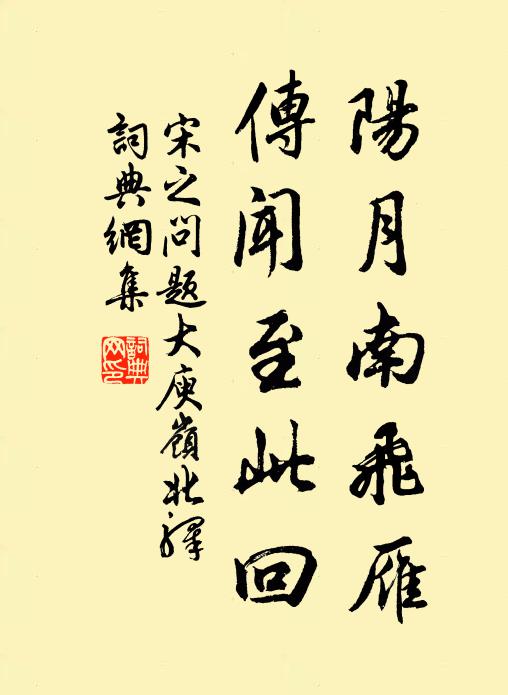 陽月南飛雁
傳聞至此回
宋之問題大庾嶺北驛
詞典網集
詞典
网印